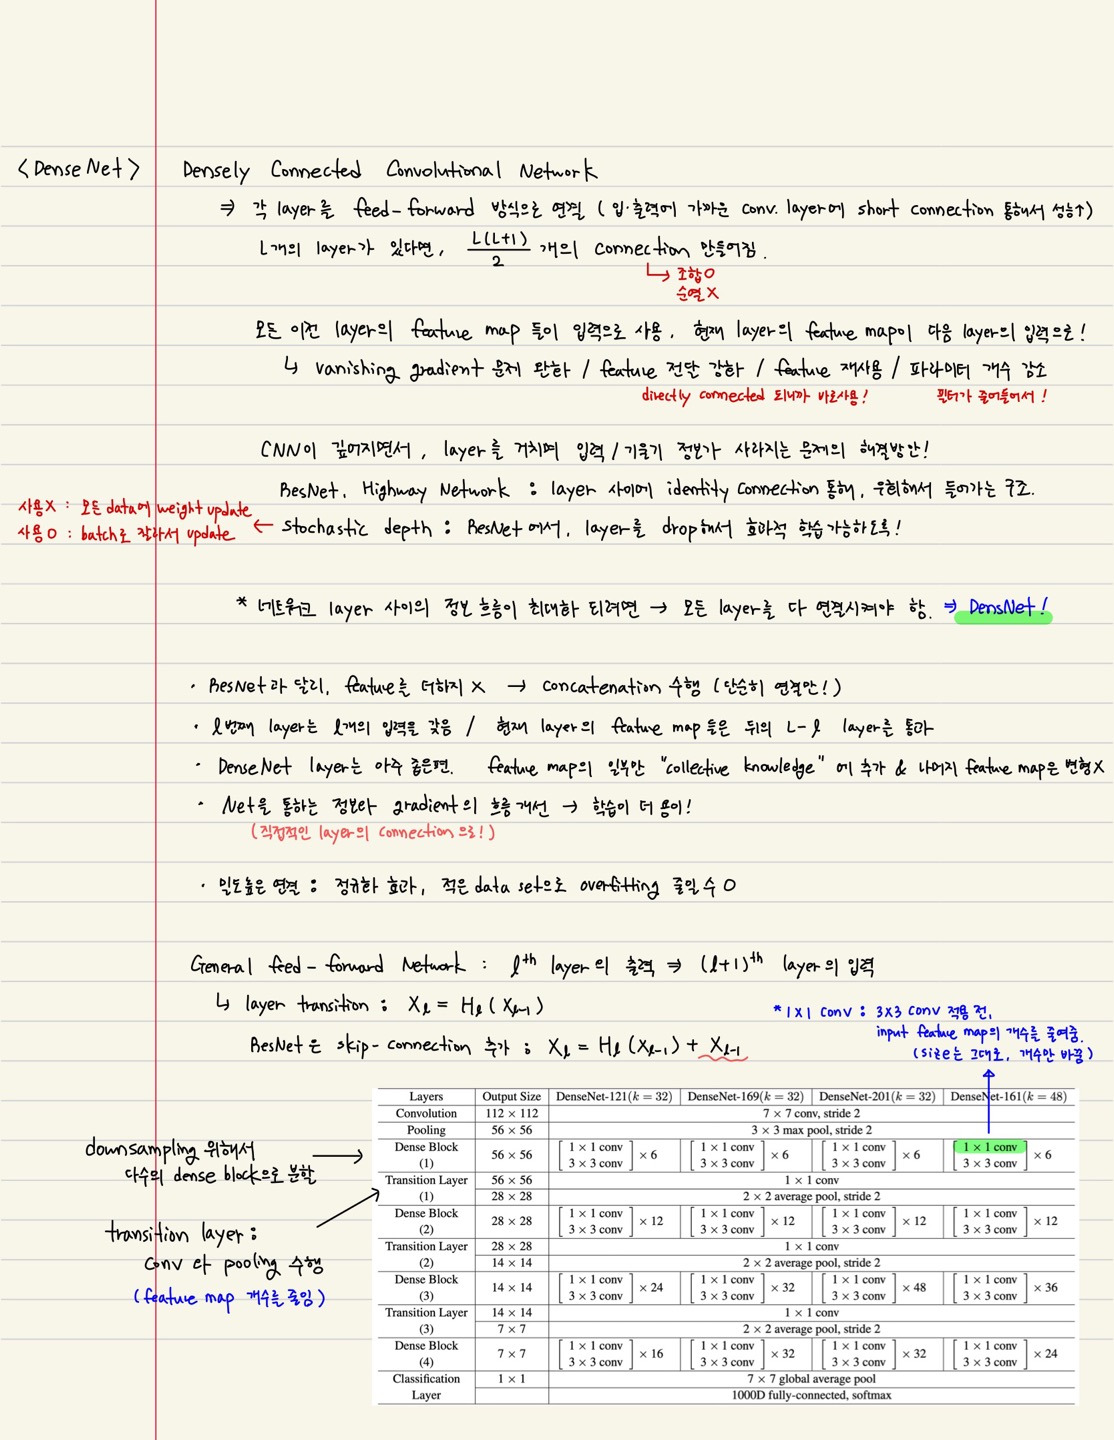 <DenseNet> Densely Connected Convolutional Network
⇒ 각 layer를 feed-forward 방식으로 연결 (입·출력에 가까운 conv. layer에 short connection 통해서 성능↑)
L개의 layer가 있다면, L(L+1)/2 개의 connection 만들어짐.
↳ 조합O
순열X
모든 이전 layer의 feature map 들이 입력으로 사용, 현재 layer의 feature map이 다음 layer의 입력으로!
↳ vanishing gradient 문제 완화 / feature 전달 강화 / feature 재사용 / 파라미터 개수 감소
directly connected 되니까 바로사용! 필터가 줄어들어서!
CNN이 깊어지면서, layer를 거치며 입력/기울기 정보가 사라지는 문제의 해결방안!
ResNet, Highway Network : layer 사이에 identity connection 통해, 우회해서 들어가는 구조.
사용X : 모든 data에 weight update
사용O : batch로 잘라서 update ← stochastic depth : ResNet에서, layer를 drop해서 효과적 학습 가능하도록!
* 네트워크 layer 사이의 정보 흐름이 최대화 되려면 → 모든 layer를 다 연결시켜야 함. ⇒ DensNet!
· ResNet과 달리, feature를 더하지 X → concatenation 수행 (단순히 연결만!)
· l번째 layer는 l개의 입력을 갖음 / 현재 layer의 feature map 들은 뒤의 L-l layer를 통과
· DenseNet layer는 아주 좁은편. feature map의 일부만 "collective knowledge" 에 추가 & 나머지 feature map은 변형X
· Net을 통하는 정보와 gradient의 흐름 개선 → 학습이 더 용이!
(직접적인 layer의 connection 으로!)
· 밀도높은 연결 : 정규화 효과, 적은 data set으로 overfitting 줄일 수 O
General feed-forward Network : lth layer의 출력 ⇒ (l+1)th layer의 입력
↳ layer transition : Xl = Hl(Xl-1)
ResNet은 skip-connection 추가 : Xl = Hl(Xl-1) + Xl-1
*1X1 conv : 3X3 conv 적용 전,
input feature map의 개수를 줄여줌.
(size는 그대로, 개수만 바뀜)
downsampling 위해서
다수의 dense block으로 분할
transition layer :
conv 와 pooling 수행
(feature map 개수를 줄임)
Layers Output Size DenseNet-121(k = 32) DenseNet-169(k = 32) DenseNet-201(k = 32) DenseNet-161(k = 48)
Convolution 112 × 112 7 × 7 conv, stride 2
Pooling 56 × 56 3 × 3 max pool, stride 2
Dense Block (1) 56 × 56 [1 × 1 conv 3 × 3 conv] × 6 [1 × 1 conv 3 × 3 conv] × 6 [1 × 1 conv 3 × 3 conv] × 6 [1 × 1 conv 3 × 3 conv] × 6
Transition Layer 56 × 56 1 × 1 conv
(1) 28 × 28 2 × 2 average pool, stride 2
Dense Block (2) 28 × 28 [1 × 1 conv 3 × 3 conv] × 12 [1 × 1 conv 3 × 3 conv] × 12 [1 × 1 conv 3 × 3 conv] × 12 [1 × 1 conv 3 × 3 conv] × 12
Transition Layer 28 × 28 1 × 1 conv
(2) 14 × 14 2 × 2 average pool, stride 2
Dense Block (3) 14 × 14 [1 × 1 conv 3 × 3 conv] × 24 [1 × 1 conv 3 × 3 conv] × 32 [1 × 1 conv 3 × 3 conv] × 48 [1 × 1 conv 3 × 3 conv] × 36
Transition Layer 14 × 14 1 × 1 conv
(3) 7 × 7 2 × 2 average pool, stride 2
Dense Block (4) 7 × 7 [1 × 1 conv 3 × 3 conv] × 16 [1 × 1 conv 3 × 3 conv] × 32 [1 × 1 conv 3 × 3 conv] × 32 [1 × 1 conv 3 × 3 conv] × 24
Classification 1 × 1 7 × 7 global average pool
Layer 1000D fully-connected, softmax